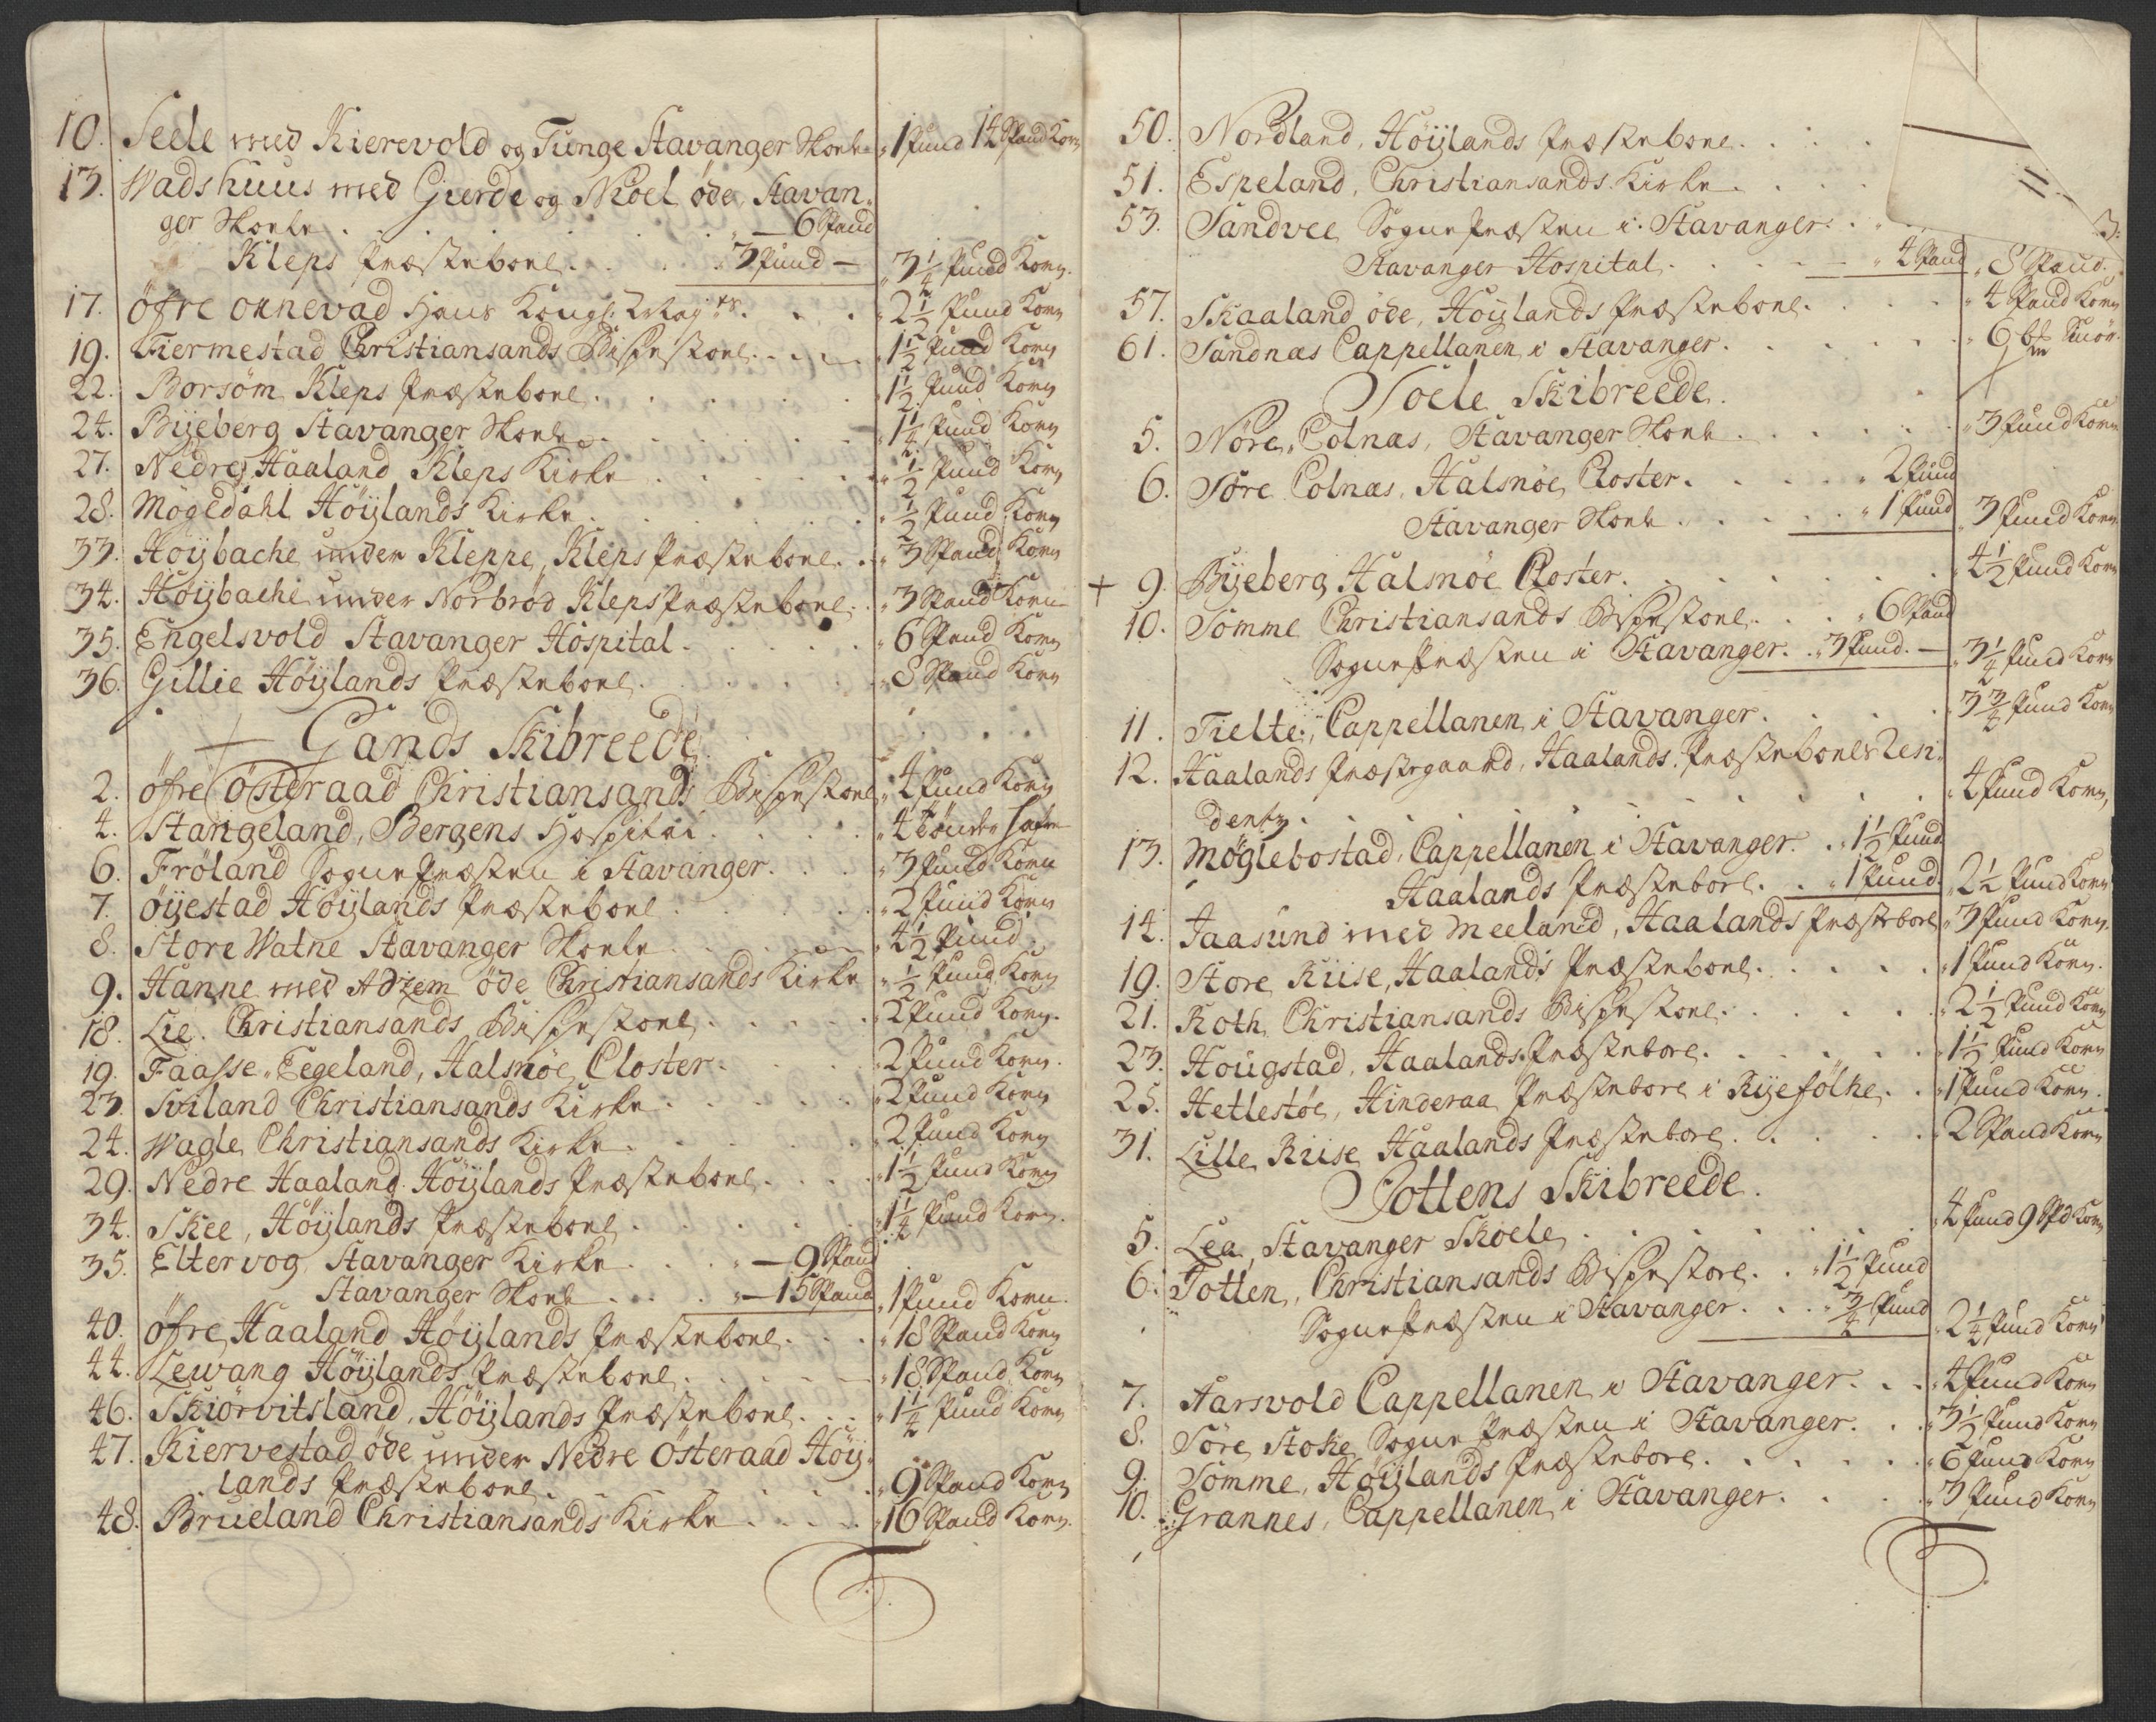 10. Seele med Kierevold og Tunge Stavanger Skoele „ 1 Pund 14 Spand Korn
13. Wadshuus med Gierde og Moel øde, Stavan„
ger Skoele . . . „ — 6 Spand
Kleps Præsteboel . . . „ 3 Pund — „ 3 1/4 Pund Korn
17. Øfre Onnevad Hans Kongl: Mayts. . . . „ 2 1/2 Pund Korn
19. Fiermestad Christiansands Bispestoel . . . „ 1 1/2 Pund Korn
22. Borsøm Kleps Præsteboel . . . „ 1 1/2 Pund Korn
24. Byeberg Stavanger Skoele . . . „ 1 1/4 Pund Korn
27. Nedre Haaland Kleps Kirke . . . „ 1/2 Pund Korn
28. Møgedahl Høylands Kirke . . . „ 1/2 Pund Korn
33. Høybache under Kleppe, Kleps Præsteboel . . „ 3 Spand Korn
34. Høybache under Norbrød Kleps Præsteboel . . „ 3 Spand Korn
35. Engelsvold Stavanger Hospital . . . „ 6 Spand Korn
36. Gillie Høylands Præsteboel . . . „ 8 Spand Korn
Gands Skibreede
2. Øfre Østeraad Christiansands Bispestoel „ 4 Pund Korn
4. Stangeland, Bergens Hospital . . . „ 4 Tønder Hafre
6. Frøland SognePræsten i Stavanger . . . „ 3 Pund Korn
7. Øyestad Høylands Præsteboel . . . „ 2 Pund Korn
8. Store Watne Stavanger Skoele . . . „ 4 1/2 Pund
9. Hanne med Adzem øde Christiansands Kirke „ 1/2 Pund Korn
18. Lie Christiansands Bispestoel . . . „ 2 Pund Korn
19. Faasse„Eegeland, Halsnøe Closter . . . „ 2 Pund Korn
23. Sviland Christiansands Kirke . . . „ 2 Pund Korn
24. Wagle Christiansands Kirke . . . „ 2 Pund Korn
29. Nedre Haaland Høylands Præsteboel . . . „ 1 1/2 Pund Korn
34. Skee, Høylands Præsteboel . . . „ 1 1/4 Pund Korn
35. Eltervog Stavanger Kirke . . . „ — 9 Spand
Stavanger Skoele . . . „ — 15 Spand „ 1 Pund Korn
40. Øfre Haaland Høylands Præsteboel . . . „ 18 Spand Korn
44. Lewang Høylands Præsteboel . . . „ 18 Spand Korn
46. Skiørvitsland, Høylands Præsteboel . . . „ 1 1/4 Pund Korn
47. Kiervestad øde under Nedre Østeraad Høy„
lands Præsteboel . . . „ 9 Spand Korn
48. Brueland Christiansands Kirke . . . „ 16 Spand Korn
50. Nordland, Høylands Præsteboel . . .
51. Espeland, Christiansands Kirke . . .
53. Sandvee SognePræsten i Stavanger . .
Stavanger Hospital . . . „ 4 Spand „ 8 Spand
57. Skaaland øde, Høylands Præsteboel . . . „ 4 Spand Korn
61. Sandnas Cappellanen i Stavanger . . . „ 6 Smør
Soele Skibreede.
5. Nøre„Colnas, Stavanger Skoele . . . „ 3 Pund Korn
6. Søre Colnas, Halsnøe Closter . . . „ 2 Pund
Stavanger Skoele . . . „ 1 Pund „ 3 Pund Korn
+ 9. Byeberg Halsnøe Closter . . . „ 4 1/2 Pund Korn
10. Sømme Christiansands Bispestoel . . . „ 6 Spand
SognePræsten i Stavanger . . „ 3 Pund. — „ 3 1/4 Pund Korn
11. Tielte, Cappellanen i Stavanger . . . „ 3 3/4 Pund Korn
12. Haalands Præstegaard, Haalands Præsteboels Resi„
dentz . . . „ 4 Pund Korn
13. Møglebostad, Cappellanen i Stavanger . . „ 1 1/2 Pund
Haalands Præsteboel . . „ 1 Pund „ 2 1/2 Pund Korn
14. Jaasund med Meeland, Haalands Præsteboel „ 3 Pund Korn
19. Store Riise, Haalands Præsteboel . . . „ 1 Pund Korn
21. Roth Christiansands Bispestoel . . . „ 2 1/2 Pund Korn
23. Hougstad, Haalands Præsteboel . . . „ 1 1/2 Pund Korn
25. Hetlestøe, Hinderaa Præsteboel i Ryefølke . . „ 1 Pund Korn
31. Lille Riise Haalands Præsteboel . . . „ 2 Spand Korn
Jottens Skibreede.
5. Lea, Stavanger Skoele . . . „ 4 Pund 9 Spd Korn
6. Jotten, Christiansands Bispestoel . . „ 1 1/2 Pund
SognePræsten i Stavanger . . . „ 3/4 Pund „ 2 1/4 Pund Korn
7. Harsvold Cappellanen i Stavanger . . . „ 4 Pund Korn
8. Søre Stoke SognePræsten i Stavanger . . „ 3 1/2 Pund Korn
9. Sømme, Høylands Præsteboel . . . „ 6 Pund Korn
10. Grannes, Cappellanen i Stavanger . . . „ 3 Pund Korn